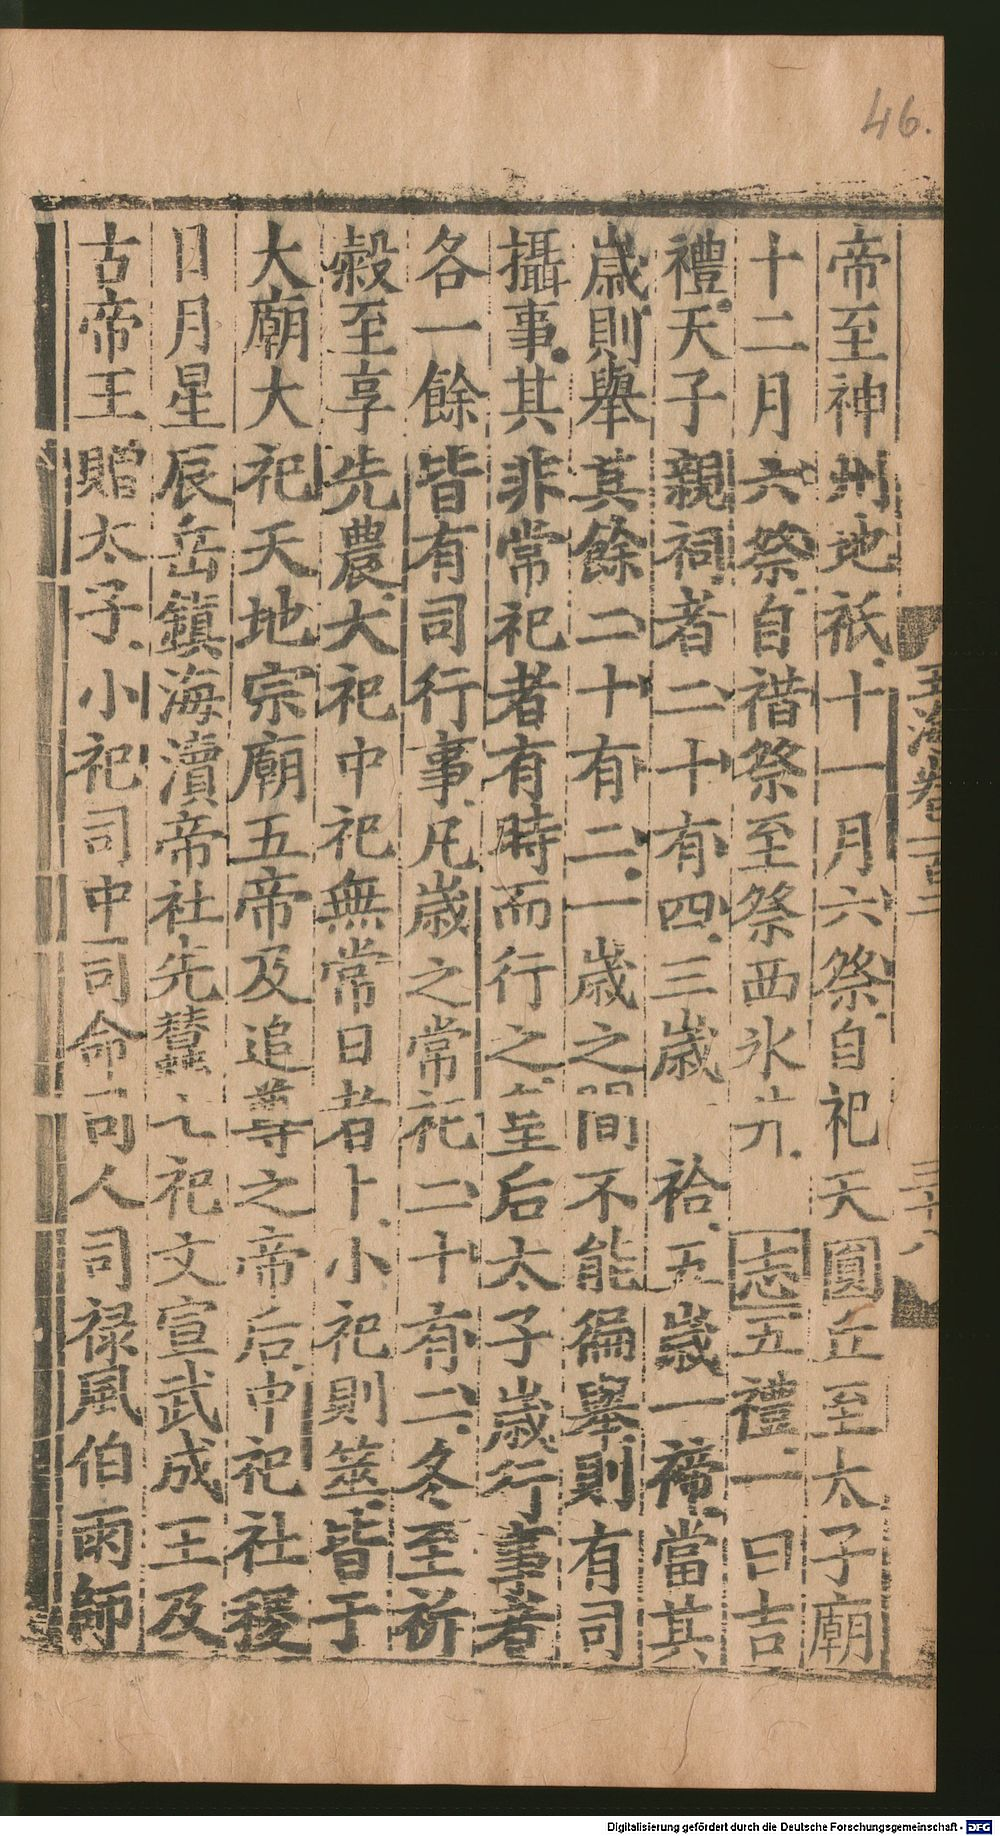 46.
帝至神州地祇十一月六祭自祀天圓丘至太子廟
十二月六祭自禡祭至祭西冰井志五禮一曰吉
禮天子親祠者二十有四三歲祫五歲一禘當其
歲則舉其餘二十有二一歲之間不能徧舉則有司
攝事其非常祀者有時而行之皇后太子歲行事者
各一餘皆有司行事凡歲之常祀二十有二冬至祈
穀至享先農大祀中祀無常日者卜小祀則筮皆于
大廟大祀天地宗廟五帝及追尊之帝后中祀社稷
日月星辰岳鎮海瀆帝社先蠶七祀文宣武成王及
古帝王贈太子小祀司中司命司人司祿風伯雨師
玉海卷一百二
三十八
Digitalisierung gefördert durch die Deutsche Forschungsgemeinschaft - DFG